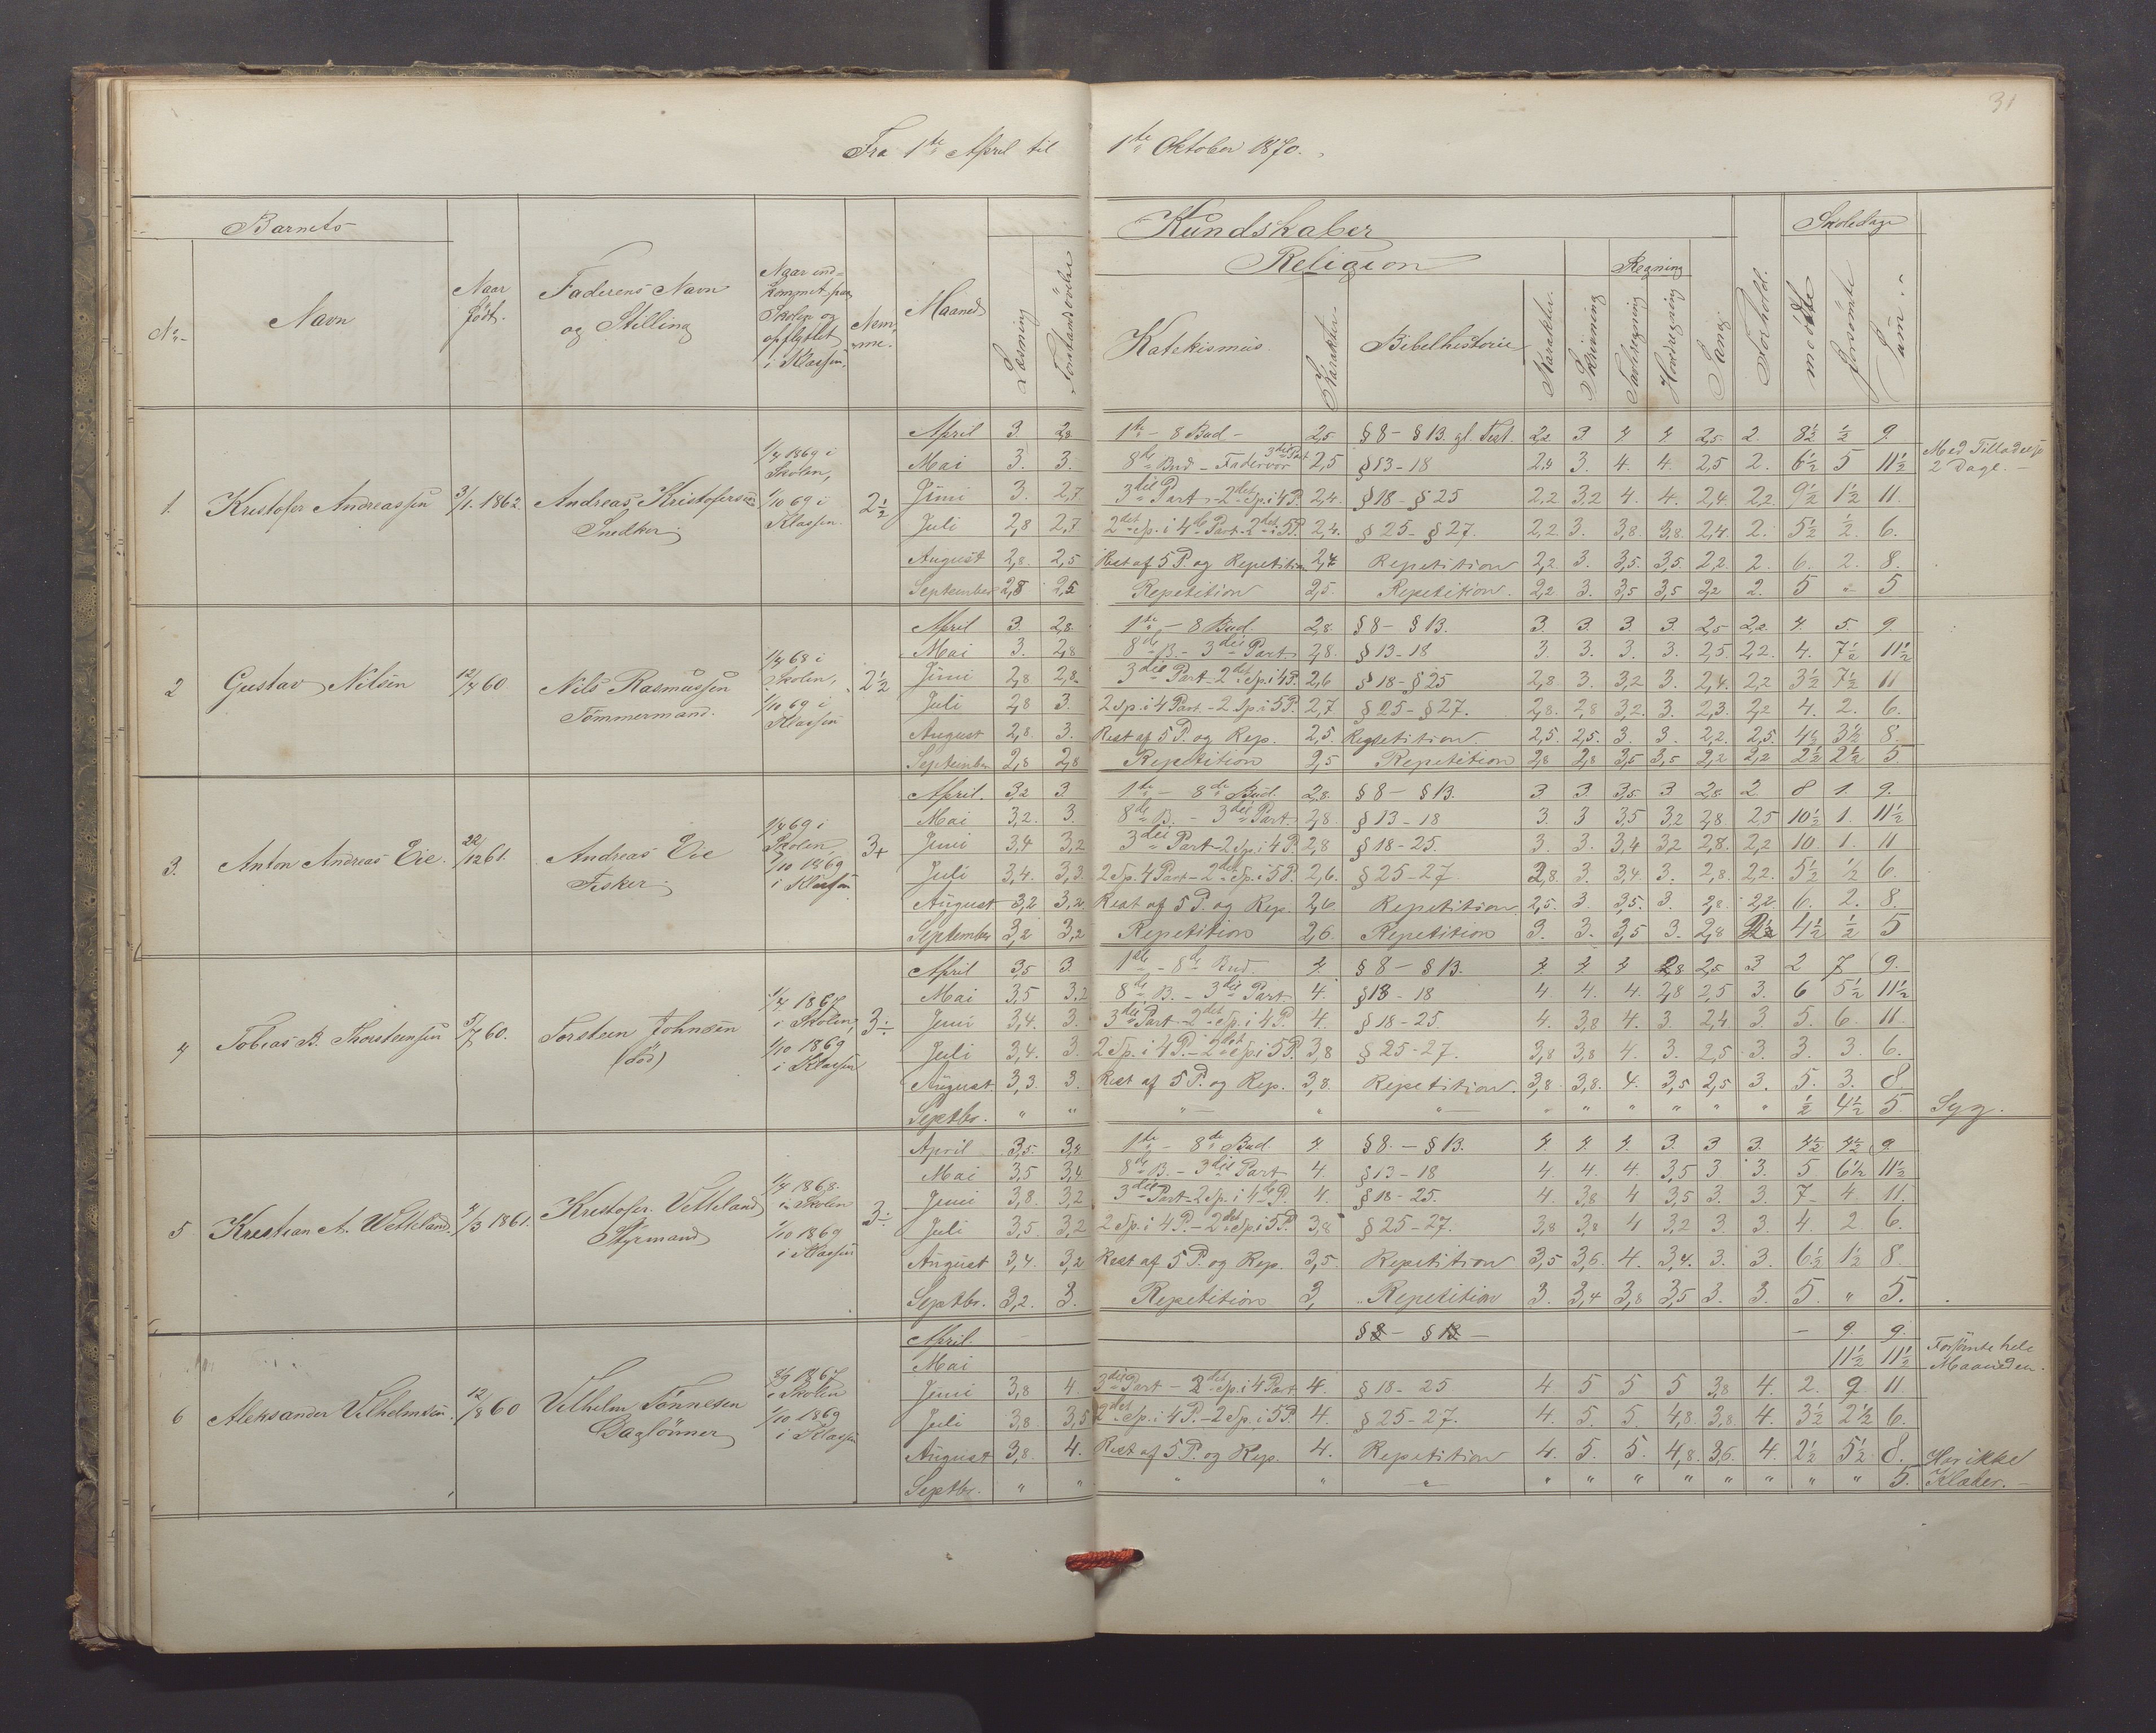 31
Fra 1ste April til 1ste Oktober 1870.
Barnets
Kundskaber
Skoledage
Religion
Regning
No
Navn
Naar født.
Faderens Navn og Stilling
Naar ind-
kommet paa
Skolen og
opflyttet
i Klassen.
Nem-
me.
Maaned
Læsning
Forstandsövelse
Katekismus
Karakter.
Bibelhistorie
Karakter.
Skrivning
Tavleregning
Hovedregning
Sang
Forhold.
mødte
forsömte
Sum
1. Kristofer Andreassen 3/1. 1862. Andreas Kristofersen Snedker. 1/4 1869 i Skolen, 1/10 69 i Klassen. 2½
April 3. 2,8 1ste - 8 Bud - 2,5 § 8 - § 13. gl. Test. 2,2 3. 4 4 2,5. 2. 8½ ½ 9.
Mai 3. 3. 8de Bud - Fadervor 3die Part 2,5 § 13 - 18 2,4 3. 4. 4. 2,5 2. 6½ 5 11½ Med Tilladelse 2 Dage. -
Juni 3. 2,7 3die Part - 2det Sp. i 4 P. 2,4. § 18 - § 25 2,2 3,2 4. 4. 2,4. 2,2. 9½ 1½ 11.
Juli 2,8 2,7 2det Sp. i 4de Part - 2det i 5 P. 2,4. § 25 - § 27. 2,2. 3. 3,8. 3,8. 2,4. 2. 5½ ½. 6.
August 2,8. 2,5 Rest af 5 P. og Repetition 2,4 Repetition 2,2 3. 3,5. 3,5. 2,2. 2. 6. 2. 8.
September 2,8 2,5 Repetition 2,5. Repetition. 2,2 3. 3,5 3,5 2,2 2. 5 " 5
2 Gustav Nilsen 12/4 60 Nils Rasmussen Tömmermand. 1/4 68 i Skolen, 1/10 69 i Klassen 2½
April 3. 2,8. 1ste - 8 Bud. 2,8. § 8 - § 13. 3. 3. 3. 3. 2,5 2,2. 4 5. 9.
Mai 3. 2,8 8de B. - 3die Part 2,8. § 13 - 18 3. 3. 3. 3. 2,5. 2,2. 4. 7½ 11½
Juni 2,8 2,8. 3die Part - 2det Sp. i 4 P. 2,6 § 18 - § 25 2,8 3. 3,2 3. 2,4. 2,2 3½ 7½ 11
Juli 2,8 3. 2 Sp. i 4 Part. - 2 Sp. i 5 P. 2,7 § 25 - § 27. 2,8. 2,8 3,2. 3. 2,3. 2,2 4. 2. 6.
August 2,8. 3. Rest af 5 P. og Rep. 2,5. Repetition. 2,5. 2,5. 3. 3. 2,2. 2,5. 4½ 3½ 8.
September 2,8 2,8 Repetition 2,5 Repetition 2,8 2,8 3,5 3,5 2,2 2,2 2½ 2½ 5
3. Anton Andreas Eie. 22/12 61. Andreas Eie Fisker. 1/4 69 i Skolen, 1/10 1869 i Klassen 3+
April. 3,2 3 1ste - 8de Bud 2,8. § 8 - § 13. 3 3. 3,5. 3 2,8. 2 8 1. 9.
Mai 3,2. 3. 8de B. - 3die Part 2,8. § 13 - 18 3. 3 3,5 3,2 2,8 2,5 10½ 1. 11½
Juni 3,4 3,2 3die Part - 2 Sp. i 4 P. 2,8 § 18 - 25. 3. 3. 3,4 3,2 2,8. 2,2 10. 1. 11
Juli 3,4. 3,3. 2 Sp. 4 Part - 2det Sp. i 5 P. 2,6. § 25 - 27. 2,8. 3. 3,4. 3. 2,8. 2,2. 5½ ½ 6.
August 3,2 3,2 Rest af 5 P. og Rep. 2,6 Repetition 2,5. 3. 3,5. 3. 2,8. 2,2. 6. 2. 8.
September 3,2 3,2 Repetition 2,6. Repetition 3. 3. 3,5 3. 2,8 4½ ½ 5
4 Tobias B. Thorsteinsen 5/7 60. Torsteen Johnsen (död) 1/4 1867 i Skolen, 1/10 1869 i Klassen 3÷
April 3,5 3. 1ste - 8de Bud. 4. § 8 - § 13. 4. 4. 4 2,8 2,5 3 2 7 9.
Mai 3,5 3,2 8de B. - 3die Part 4. § 13 - 18 4. 4. 4. 2,8 2,5 3. 6 5½ 11½
Juni 3,4. 3. 3die Part - 2det Sp. i 4 P. 4. § 18 - 25. 4. 3,8 4. 3. 2,4 3. 5. 6. 11.
Juli 3,4. 3. 2 Sp. i 4 P. - 2det Sp i 5 P. 3,8 § 25 - 27. 3,8 3,8 4. 3. 2,5 3. 3. 3. 6.
August 3,3. 3. Rest af 5 P. og Rep. 3,8. Repetition. 3,8. 3,8. 4. 3,5 2,5 3. 5. 3. 8
Septbr. " " " " " " " " " " " ½ 4½ 5. Syg.
5 Kristian A. Vetteland. 9/3 1861. Kristofer. Vetteland Styrmand 1/4 1868. i Skolen 1/10 1869 i Klassen 3÷
April 3,5. 3,4 1ste - 8de Bud 4. § 8. - § 13. 4. 4. 4. 3. 3 3. 4½ 4½ 9.
Mai 3,5 3,4 8de B. - 3die Part 4. § 13 - 18 4. 4. 4. 3,5 3 3. 5 6½ 11½
Juni 3,8. 3,2 3die Part - 2 Sp. i 4de P. 4. § 18 - 25. 4. 3,8 4 3,5 3. 3. 7 4. 11.
Juli 3,5. 3,2 2 Sp. i 4 P. - 2det Sp i 5 P. 3,8 § 25 - 27. 3,8 3,8 4 3,2 3. 3. 4. 2. 6.
August 3,4. 3,2 Rest af 5 P. og Rep. 3,5. Repetition 3,5 3,6. 4. 3,4. 3. 3. 6½ 1½ 8.
Septbr. 3,2. 3. Repetition 3, Repetition 3. 3,4 3,8 3,5 3. 3. 5. " 5.
6 Aleksander Vilhelmsen. 12/8 60 Vilhelm Tönnesen Dagsönner 1867 i Skolen 1/10 1869 i Klassen
April. § 8 - § 13 - - 9. 9. Forsömte hele
Mai 11½ 11½ Maaneden.
Juni 3,8 4 3die Part - 2det Sp. i 4 Part 4. § 18 - 25 4. 5 5 5 3,8 4. 2. 9 11.
Juli 3,8. 3,5 2det Sp. i 4 P. - 2 Sp. i 5 P. 4. § 25 - 27. 4. 5. 5. 4,8. 3,8. 4. 3½ 2½ 6.
August 3,8. 4. Rest af 5 P. og Rep. 4. Repetition 4. 5. 5. 4,8. 3,6. 4. 2½ 5½ 8. Har ikke
Septbr. " " " " " " " " " " " " " 5. Klæder. -